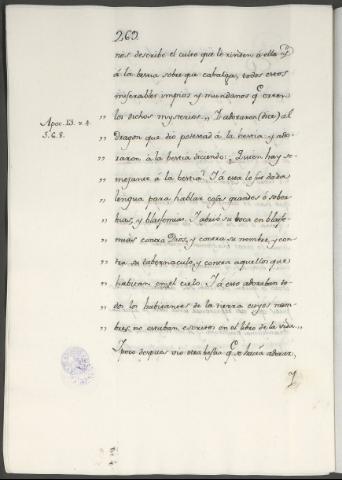 260.
nos describe el culto que le rinden á ella y
á la bestia sobre que cabalga, todos estos
miserables impios y mundanos q.e creen
los dichos mysterios,, I adoraron (dice) al
Apoc. 13. v. 4.
5. 6. 8.
Dragon que dio potestad á la bestia y ado-
,, raron á la bestia diciendo: ¿Quien hay se-
,, mejante á la bestia? I á esta le fue dada
,, lengua para hablar cosas grandes ó sober-
,, bias, y blasfemias. I abrió su boca en blasfe-
,, mias contra Dios, y contra su nombre, y con-
,, tra su tabernaculo, y contra aquellos que
,, habitan en el cielo. I á esto adoraban to-
,, dos los habitantes de la tierra cuyos nom-
,, bres no estaban escritos en el libro de la vida.,,
I poco despues vio otra bestia q.e hacía adorar,